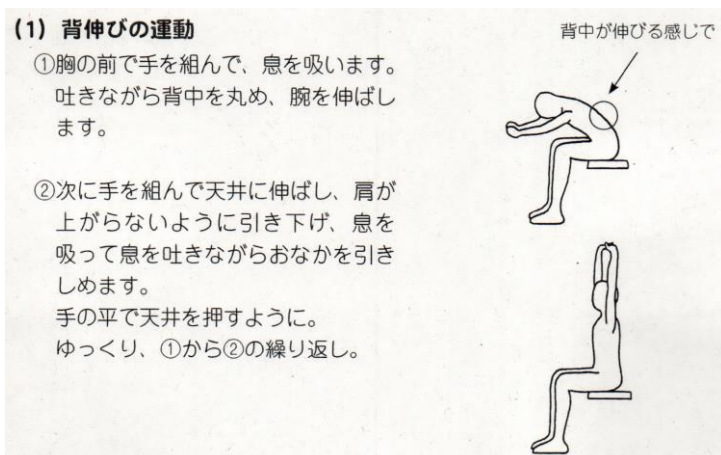 (1) 背伸びの運動
背中が伸びる感じで
①胸の前で手を組んで、息を吸います。
吐きながら背中を丸め、腕を伸ばし
ます。
②次に手を組んで天井に伸ばし、肩が
上がらないように引き下げ、息を
吸って息を吐きながらおなかを引き
しめます。
手の平で天井を押すように。
ゆっくり、①から②の繰り返し。